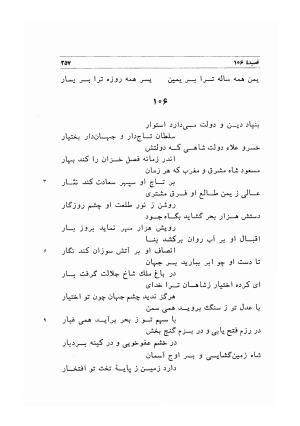 قصیدهٔ ۱۰۶ ۲۵۷
یمن همه ساله تـرا بـر یمین یسر همه روزه ترا بـر یسار
۱۰۶
بنیاد دیـن و دولت مـی‌دارد استوار
سلطان تاج‌دار و جهـان‌دار بختیار
خسرو علاء دولت شاهـی کـه دولتش
اندر زمانه فصل خـزان را کند بهار
مسعود شاه مشرق و مغرب که هر زمان
بر تـاج او سپهر سعادت کند نثـار ۳
عـالی ز یمن طـالع او فـرق مشتری
روشن ز نور طلعت او چشم روزگار
دستش هـزار بحر گشاید بگـاه جـود
رویش هزار مهر نماید بـروز بـار
اقبـال او بر آب روان برکشد بنـا
انصاف او بر آتش سوزان کند نگار ۶
تا دست او چو ابر ببارید بـر جهان
در باغ ملک شاخ جلالت گرفت بـار
ای کرده اختیار ز شاهـان تـرا خدای
هرگز ندید چشم جهان چون تو اختیار
با عدل تو ز سنگ برویـد همی سمن
با سهم تـو ز بحر برآیـد همی غبار ۹
در رزم فتح یابی و در بـزم گنج بخش
در خشم عفوخویی و در کینه بـردبار
شاه زمین‌گشایـی و بـر اوج آسمان
دارد زمیـن ز پایـهٔ تخت تو افتخـار